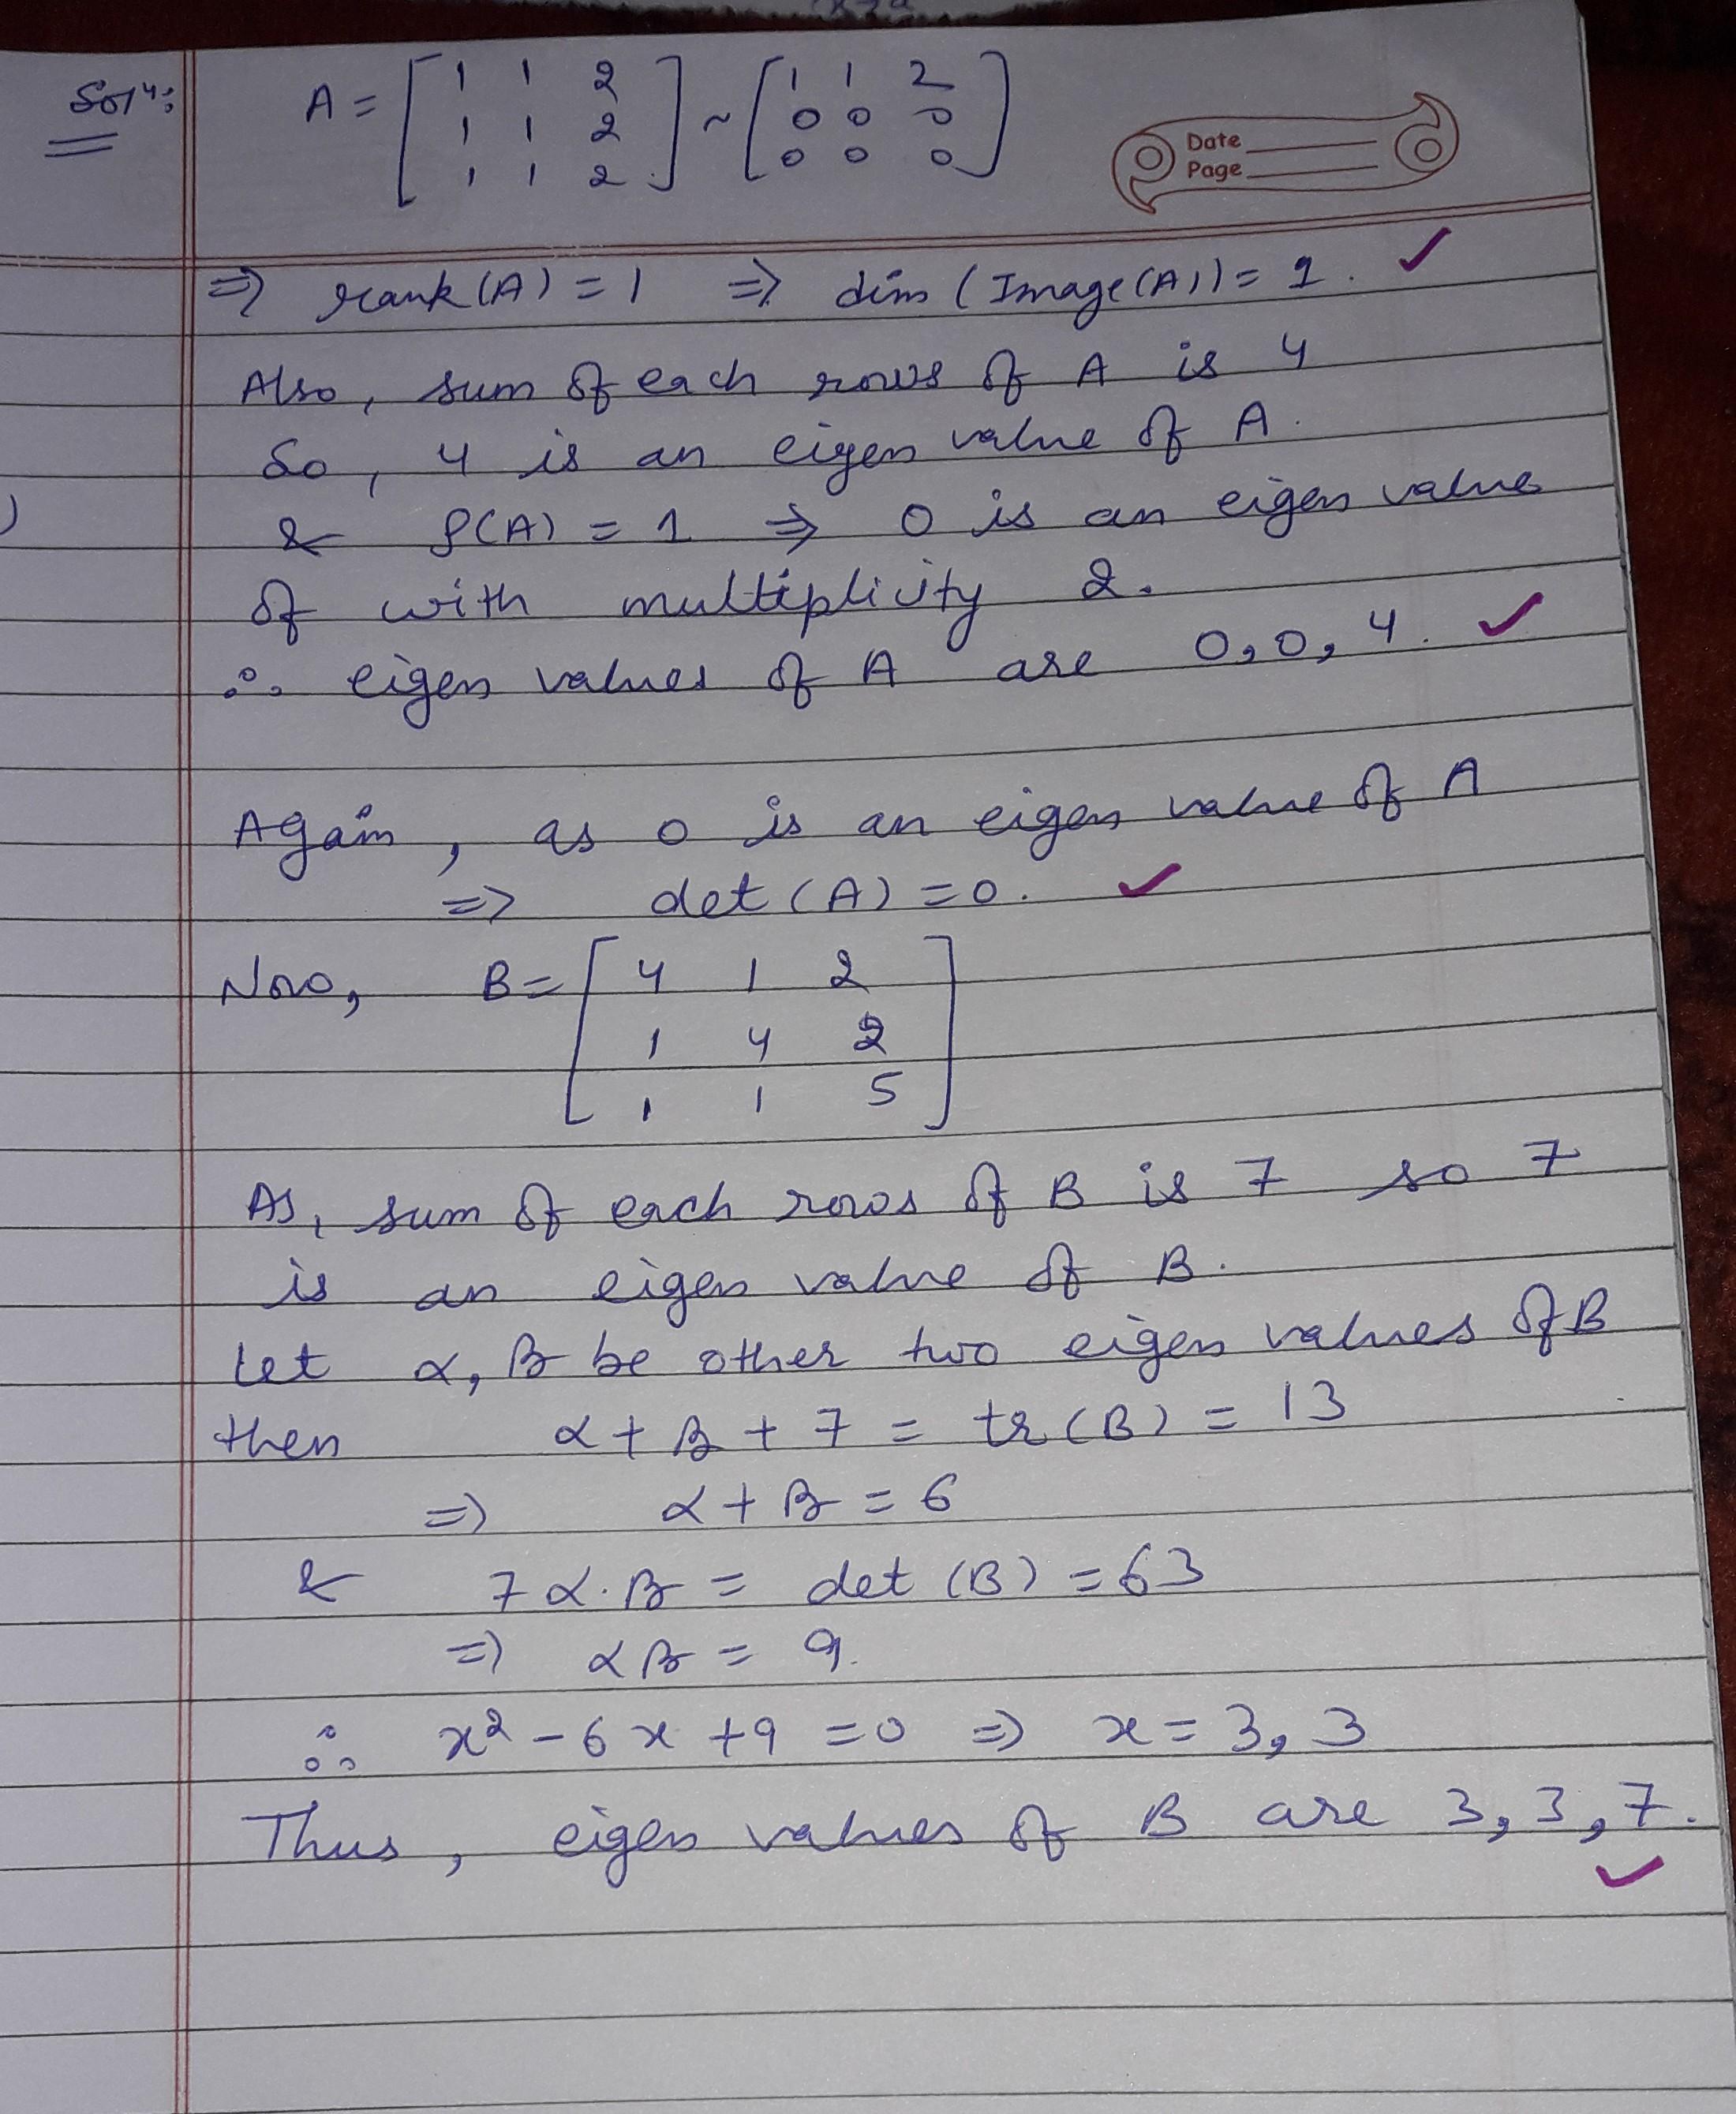 Solⁿ:
A = [ 1 1 2 ] ~ [ 1 1 2 ]
1 1 2 0 0 0
1 1 2 0 0 0
Date
Page
⇒ rank(A) = 1 ⇒ dim (Image(A)) = 1. ✓
Also, sum of each rows of A is 4
So, 4 is an eigen value of A.
& ρ(A) = 1 ⇒ 0 is an eigen value
of with multiplicity 2.
∴ eigen values of A are 0, 0, 4. ✓
Again, as 0 is an eigen value of A
⇒ det (A) = 0. ✓
Now, B = [ 4 1 2 ]
1 4 2
1 1 5
As, sum of each rows of B is 7 so 7
is an eigen value of B.
Let α, β be other two eigen values of B
then α + β + 7 = tr(B) = 13
⇒ α + β = 6
& 7α.β = det (B) = 63
⇒ αβ = 9.
∴ x² - 6x + 9 = 0 ⇒ x = 3, 3
Thus, eigen values of B are 3, 3, 7. ✓